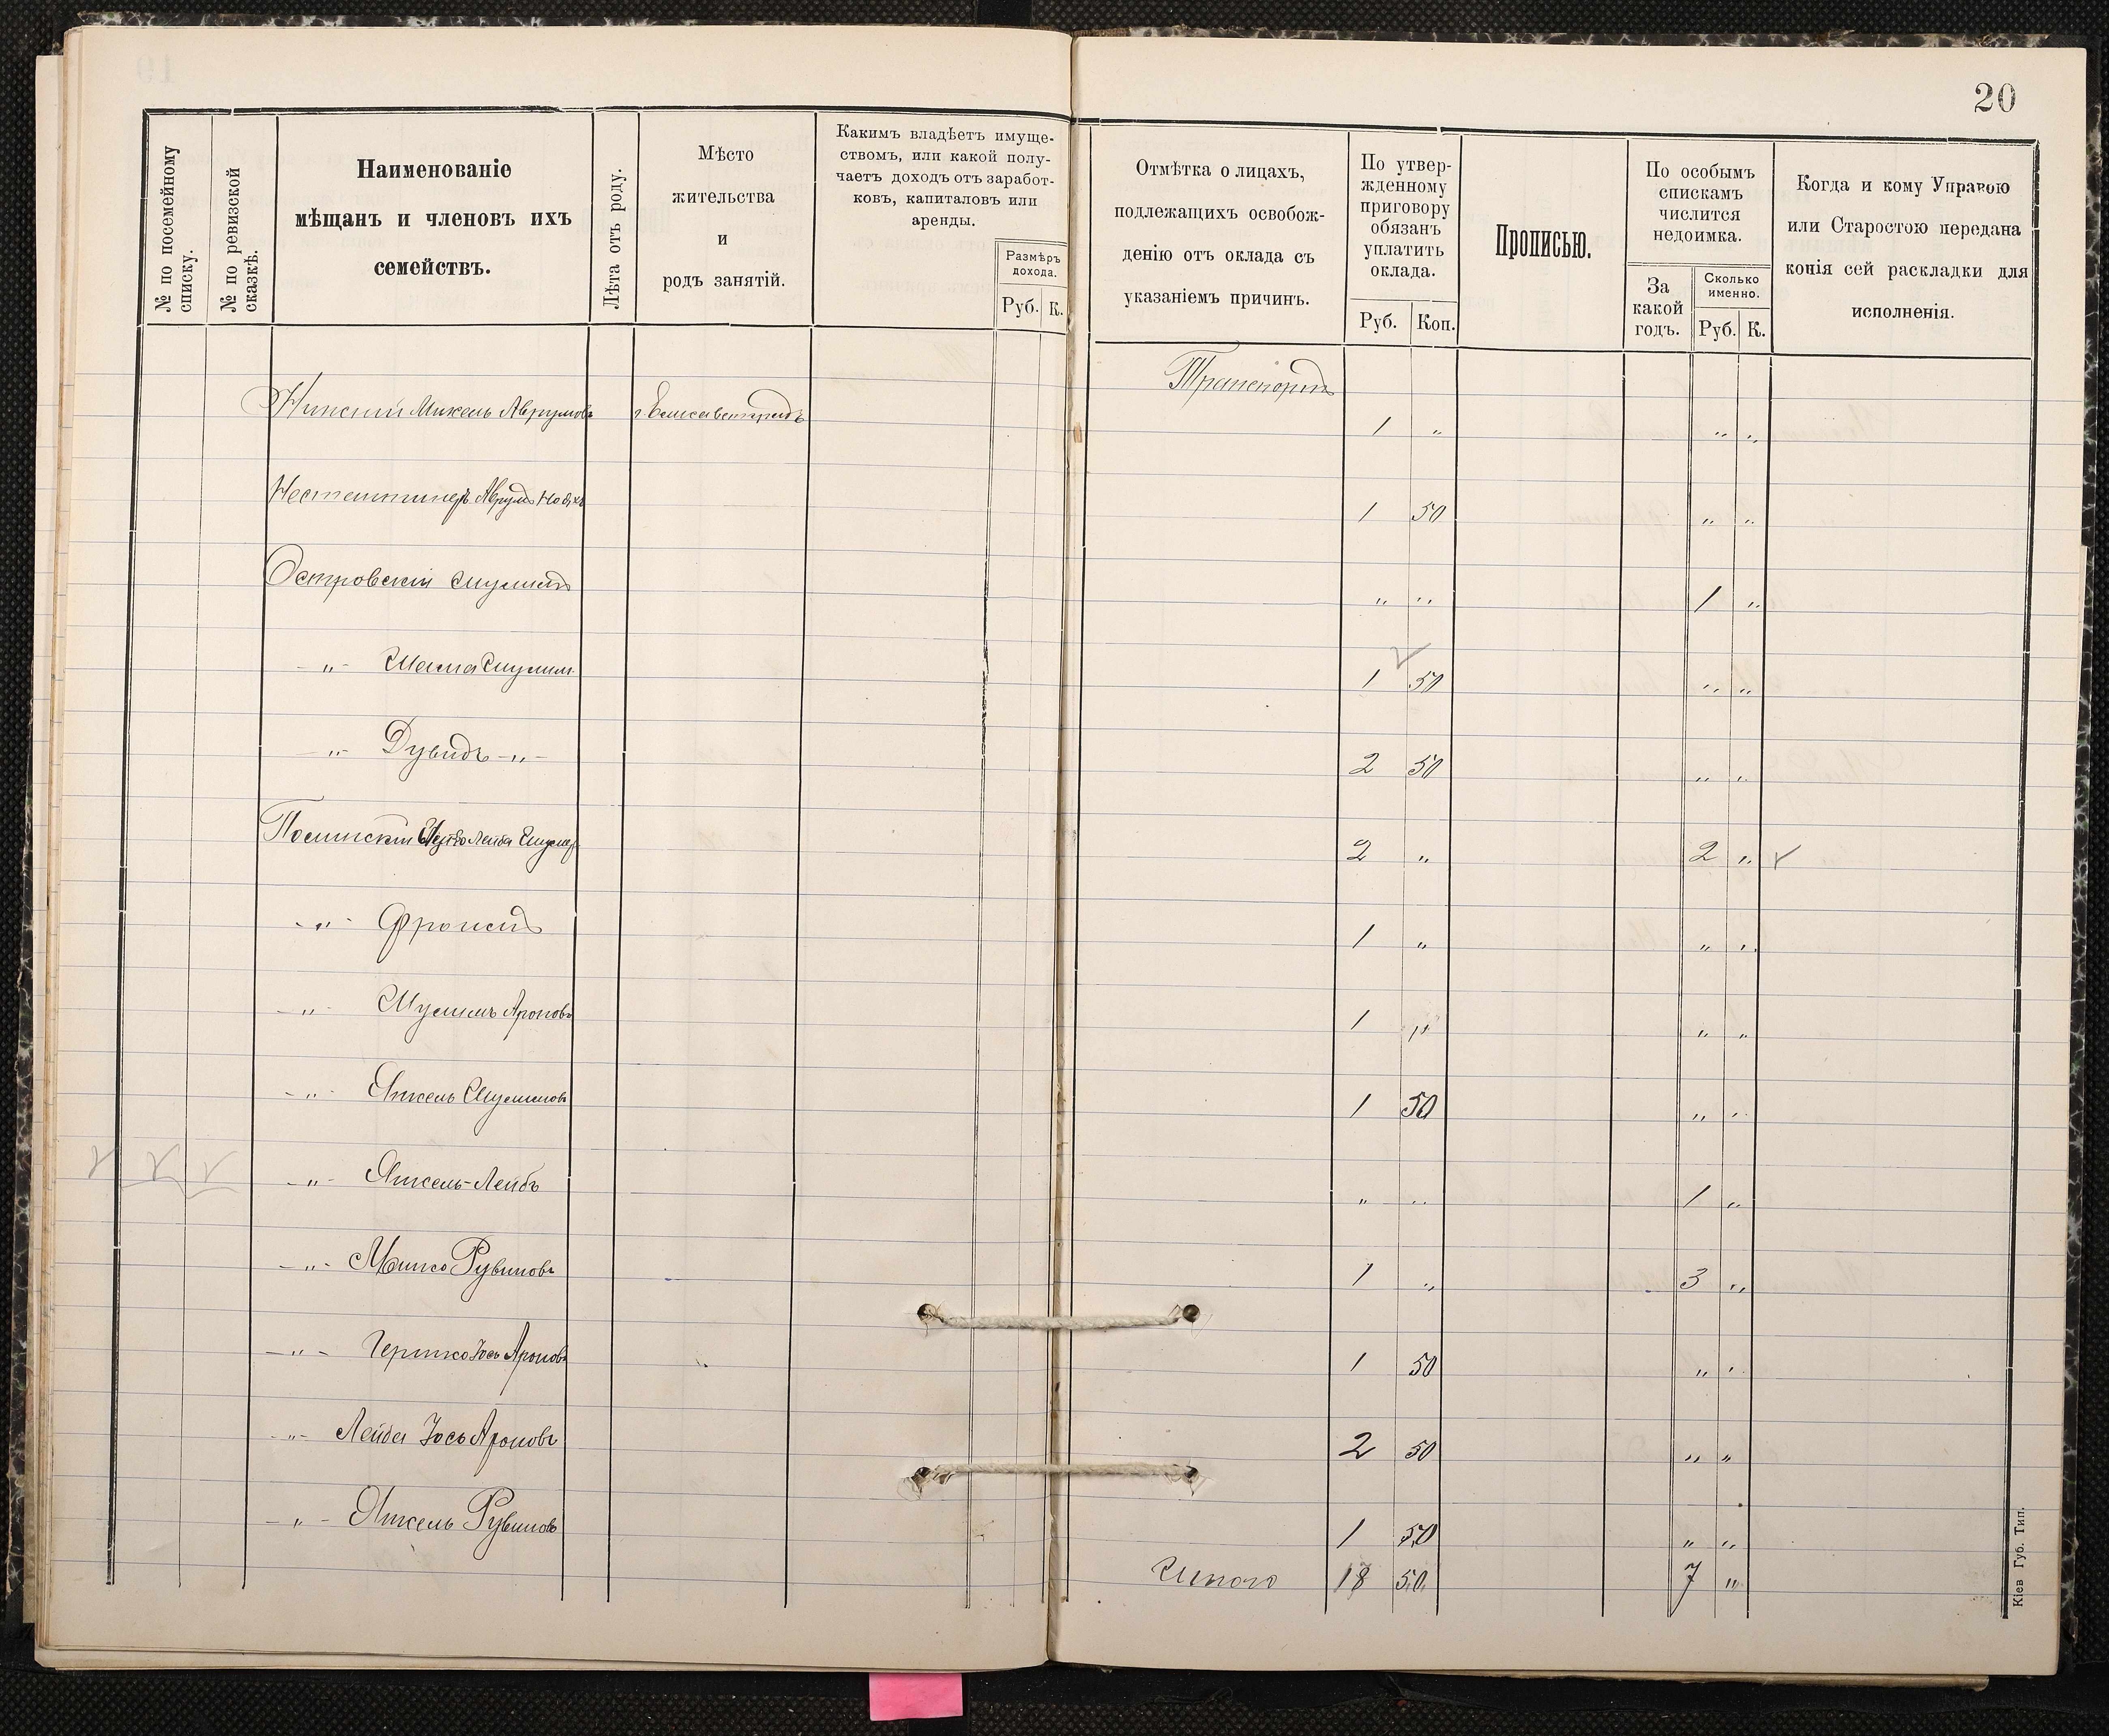 20
№ по посемейному списку.
№ по ревизской сказкѣ.
Наименованіе
мѣщанъ и членовъ ихъ
семействъ.
Лѣта отъ роду.
Мѣсто
жительства
и
родъ занятій.
Какимъ владѣетъ имуще-
ствомъ, или какой полу-
чаетъ доходъ отъ заработ-
ковъ, капиталовъ или
аренды.
Размѣръ
дохода.
Руб. К.
Отмѣтка о лицахъ,
подлежащихъ освобож-
денію отъ оклада съ
указаніемъ причинъ.
По утвер-
жденному
приговору
обязанъ
уплатить
оклада.
Руб. Коп.
Прописью.
По особымъ
спискамъ
числится
недоимка.
За
какой
годъ.
Сколько
именно.
Руб. К.
Когда и кому Управою
или Старостою передана
копія сей раскладки для
исполненія.
Транспортъ
Микель Аврумовъ г. Елисаветградъ 1 " " "
Аврумъ 1 50 " "
Островскій Шулимъ " " 1 "
-"- Шулим 1 50 " "
-"- Дувидъ -"- 2 50 " "
Лейба 2 " 2 "
-"- Фроимъ 1 " " "
-"- Шулимъ Ароновъ 1 " " "
-"- Янкель Шулимовъ 1 50 " "
-"- Янкель-Лейбъ " " 1 "
-"- Рувиновъ 1 " 3 "
-"- Гершко Іось Ароновъ 1 50 " "
-"- Лейба Іось Ароновъ 2 50 " "
-"- Янкель Рувиновъ 1 50 " "
Итого 18 50 7 "
Кіев Губ. Тип.